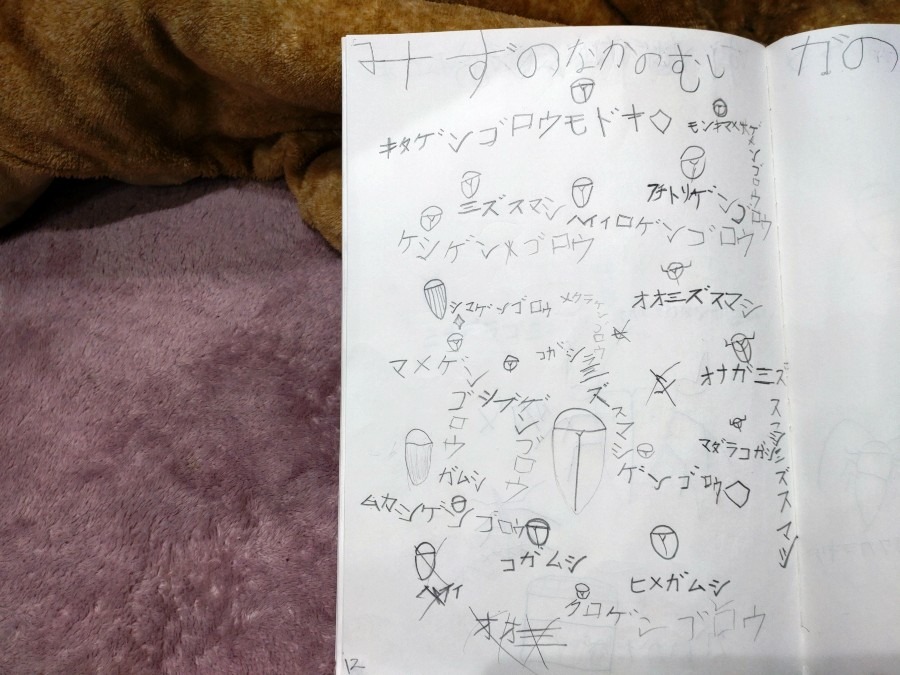 みずのなかのむし
がの
キタゲンゴロウモドキ
モンキマメゲンゴロウ
ミズスマシ
ヘイィロゲンゴロウ
フチトリゲンゴロウ
ケシゲンゴロウ
シマゲンゴロウ
メクラゲンゴロウ
オオミズスマシ
マメゲンゴロウ
コガシラミズスマシ
オナガミズスマシ
シブゲンゴロウ
ガムシ
ゲンゴロウ
マダラコガシラミズスマシ
ムカシゲンゴロウ
コガムシ
ヒメガムシ
クロゲンゴロウ
12